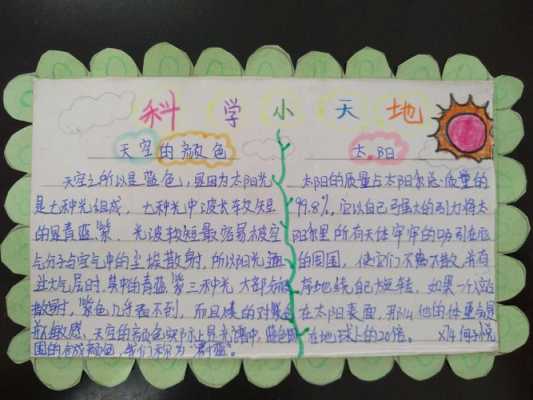 科学小天地
天空的颜色
天空之所以是蓝色，是因为太阳光
是七种光组成，七种光中波长较短
的是青蓝紫，光波较短最容易被空
气分子与空气中的尘埃散射，所以阳光通
过大气层时，其中的青蓝紫三种光大部分被
散射，紫色几乎看不到，而且 的对紫色
敏感，天空的颜色实际上是光谱中，蓝色
围的合成颜色，我们称为"蔚蓝"。
太阳
太阳的质量占太阳系总质量的
99.8%，它以自己强大的引力将太
阳系里所有天体牢牢的吸引在它
的周围，使它们不离不散，井
有地绕自己旋转，如果一个人站
在太阳表面，那么他的体重会是
在地球上的20倍。